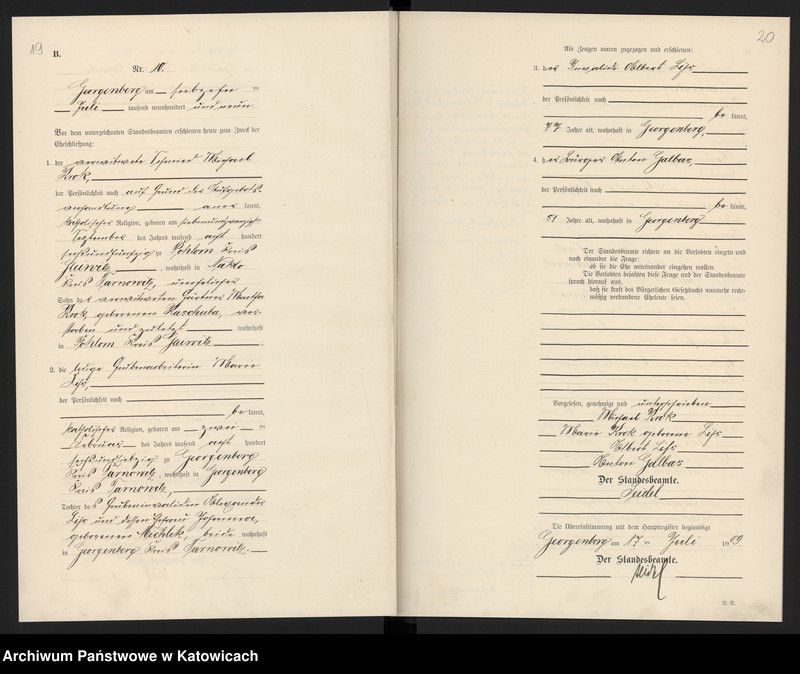 19
B.
Nr. 10.
Georgenberg am siebzehn ten
Juli tausend neunhundert und neun
Vor dem unterzeichneten Standesbeamten erschienen heute zum Zweck der
Eheschließung:
1. der verwitwete Schmied Michael
Krok,
der Persönlichkeit nach auf Grund der Aufgebots-
verhandlung aner kannt,
katholischer Religion, geboren am siebenundzwanzigsten
September des Jahres tausend acht hundert
sechsundfünfzig zu Pohlom Kreis
, wohnhaft in Naklo
Kreis Tarnowitz, unehelicher
Sohn der verwitweten Gärtner Martha
Krok, geborenen Paschuba, ver-
storben und zuletzt wohnhaft
in Pohlom Kreis
2. die ledige Grubenarbeiterin Marie
der Persönlichkeit nach
be kannt,
katholischer Religion, geboren am zwei ten
Februar des Jahres tausend acht hundert
sechsundsiebzig zu Georgenberg
Kreis Tarnowitz, wohnhaft in Georgenberg
Kreis Tarnowitz,
Tochter des Grubeninvaliden Alexander
und dessen Ehefrau Johanna,
geborenen Michlik, beide wohnhaft
in Georgenberg Kreis Tarnowitz.
20
Als Zeugen waren zugezogen und erschienen:
3. der Invalide Albert
der Persönlichkeit nach
be kannt,
77 Jahre alt, wohnhaft in Georgenberg,
4. der Bürger Anton Galbas,
der Persönlichkeit nach
be kannt,
51 Jahre alt, wohnhaft in Georgenberg
Der Standesbeamte richtete an die Verlobten einzeln und
nach einander die Frage:
ob sie die Ehe miteinander eingehen wollen.
Die Verlobten bejahten diese Frage und der Standesbeamte
sprach hierauf aus,
daß sie kraft des Bürgerlichen Gesetzbuchs nunmehr recht-
mäßig verbundene Eheleute seien.
Vorgelesen, genehmigt und unterschrieben
Michael Krok
Marie Krok geborene
Albert
Anton Galbas
Der Standesbeamte.
Seidel
Die Übereinstimmung mit dem Hauptregister beglaubigt
Georgenberg am 17 ten Juli 1909.
Der Standesbeamte.
Seidel
R.-R.
Archiwum Państwowe w Katowicach